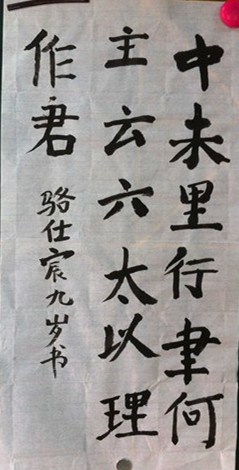 中未里行聿何
主云六太以理
作君
骆仕宸九岁书